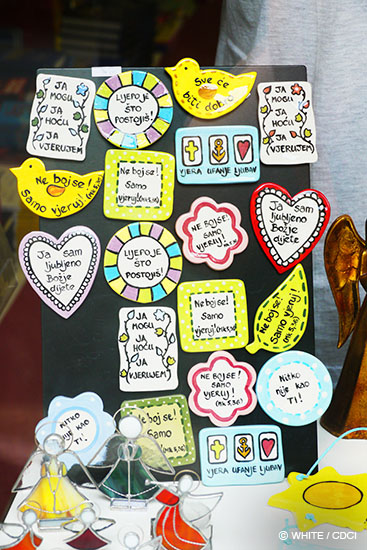 JA
MOGU
JA
HOĆU
JA
VJERUJEM
LIJEPO JE
ŠTO
POSTOJIŠ
Sve će
biti dobro
JA
MOGU
JA
HOĆU
JA
VJERUJEM
Ne boj se!
Samo vjeruj (Mk 5,36)
Ne boj se!
Samo
vjeruj! (Mk 5,36)
VJERA UFANJE LJUBAV
Ja sam
ljubljeno
Božje
dijete
LIJEPO JE
ŠTO
POSTOJIŠ
NE BOJ SE!
SAMO
VJERUJ!
Ja sam
ljubljeno
Božje
dijete
JA
MOGU
JA
HOĆU
JA
VJERUJEM
Ne boj se!
Samo
vjeruj! (Mk 5,36)
Ne boj se!
Samo vjeruj!
(Mk 5,36)
NE BOJ SE!
SAMO
VJERUJ!
Nitko
nije kao
Ti!
Nitko
nije kao
Ti!
Ne boj se!
Samo
VJERA UFANJE LJUBAV
© WHITE / CDCI